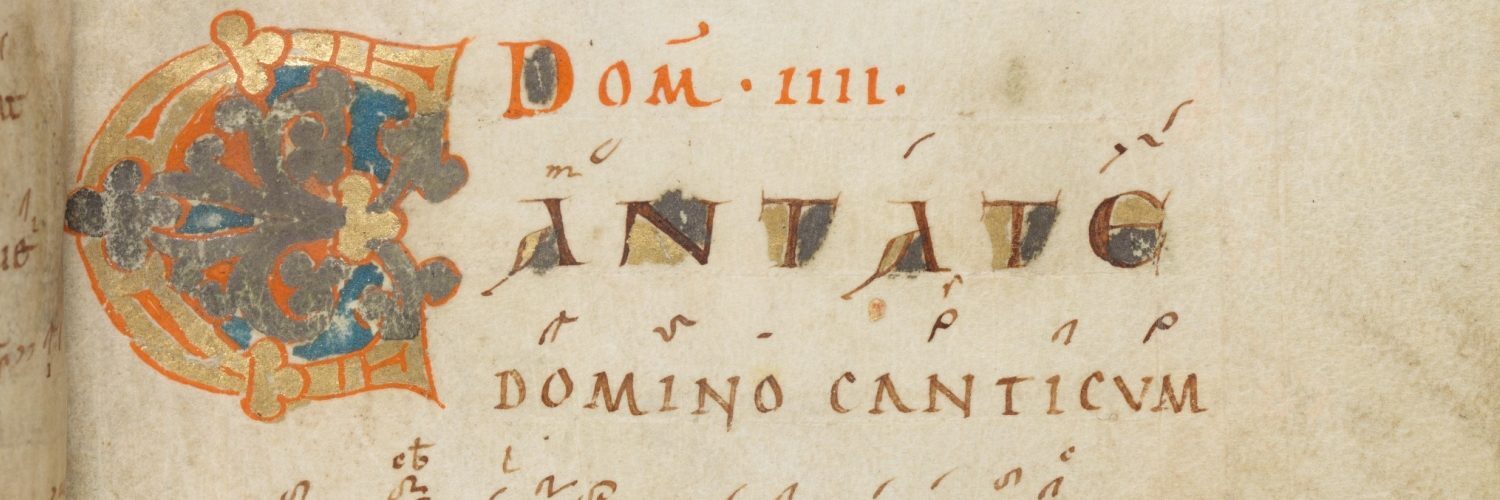 Dom̄ · IIII.
CANTATE
DOMINO CANTICVM